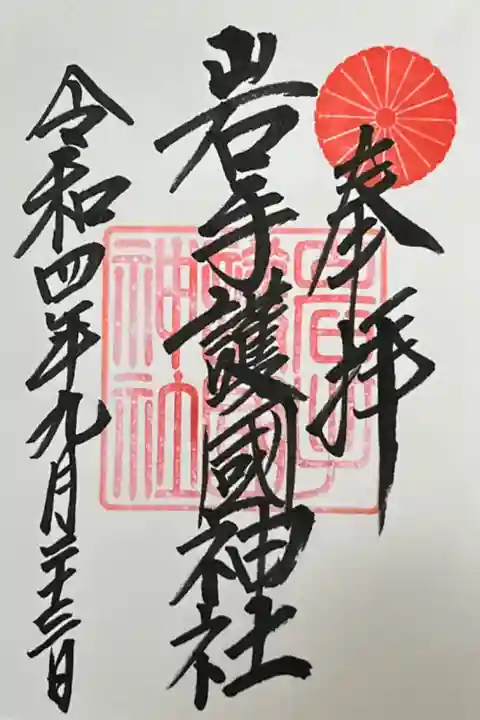 奉拝
岩手護國神社
令和四年九月二十三日
岩手
護國
神社